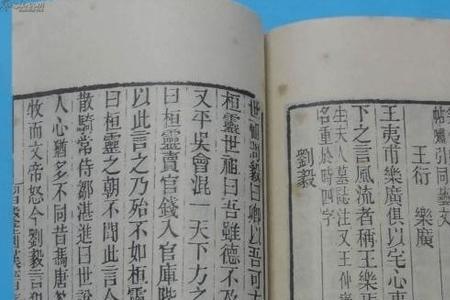 王衍 樂廣
王夷甫樂廣俱以宅心事
下之言風流者稱王樂
生夫人墓誌注又王仲
名重於時四字
劉毅
毅曰卿以吾可方
桓靈世祖曰吾雖德不
又平吳會混一天下方之
曰桓靈賣官錢入官庫陛
以此言之乃殆不如桓靈
曰桓靈之朝不聞此言
散騎常侍鄒湛進曰世說
人心猶多不同昔馮唐
牧而文帝怒今劉毅言